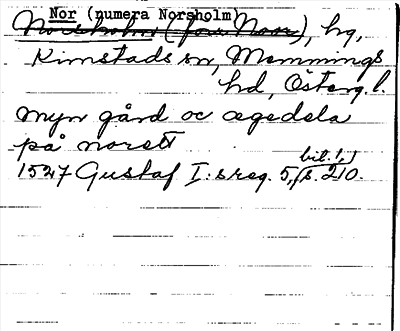 Nor (numera Norsholm)
Norsholm (förr Noor), hg,
Kimstads sn, Memmings
hd, Österg. l.
myn gård oc ægedela
på norett
1527 Gustaf I:s reg. 5, (bil. 1,) s. 210.